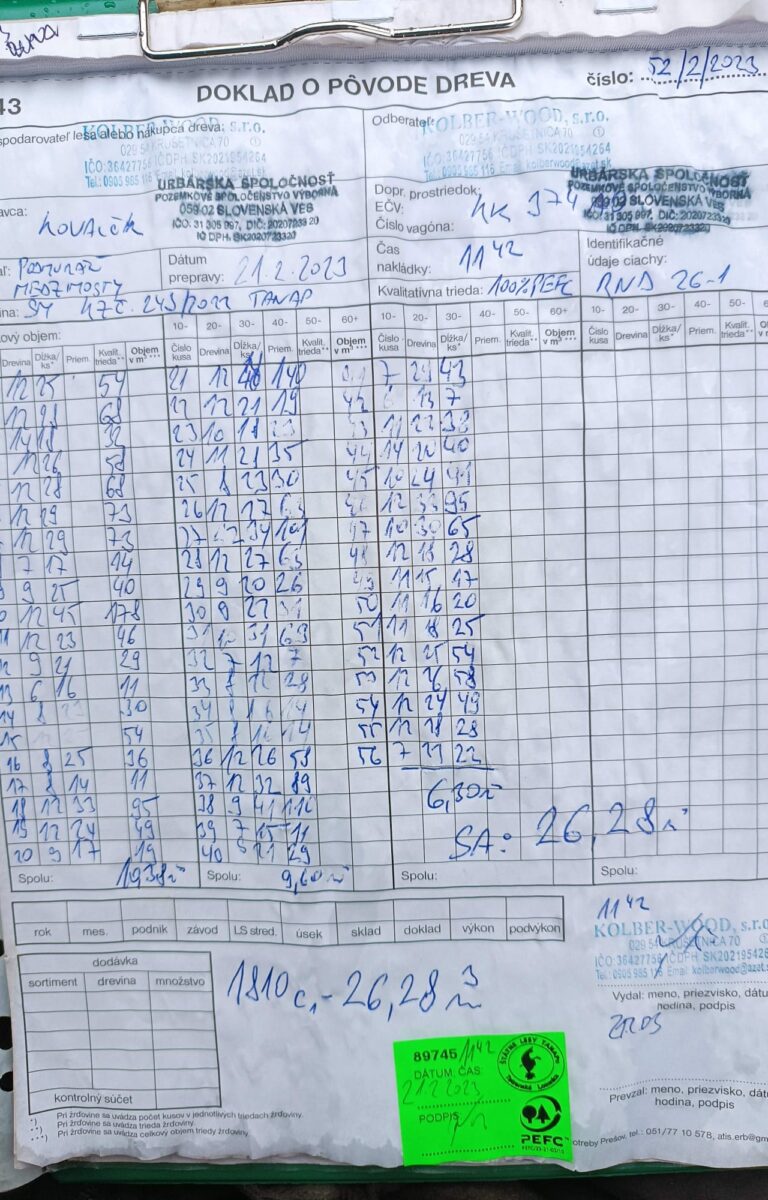 43
DOKLAD O PÔVODE DREVA
číslo: 52/2/2023
spodarovateľ lesa alebo nákupca dreva:
KOLBER-WOOD, s.r.o.
029 54 KRUŠETNICA 70 ①
IČO: 36427756 IČDPH: SK2021954264
Tel.: 0905 985 116
Odberateľ:
KOLBER-WOOD, s.r.o.
029 54 KRUŠETNICA 70 ①
IČO: 36427756 IČDPH: SK2021954264
Tel.: 0905 985 116 Email: kolberwood@azat.sk
URBÁRSKA SPOLOČNOSŤ
POZEMKOVÉ SPOLOČENSTVO VÝBORNÁ
059 02 SLOVENSKÁ VES
IČO: 31 305 997, DIČ: 2020723320
IČ DPH: SK2020723320
avca: KOVALČÍK
Dopr. prostriedok:
EČV: KK 374
Číslo vagóna:
URBÁRSKA SPOLOČNOSŤ
POZEMKOVÉ SPOLOČENSTVO VÝBORNÁ
059 02 SLOVENSKÁ VES
IČO: 31 305 997, DIČ: 2020723320
IČ DPH: SK2020723320
MEDZIMOSTY
Dátum
prepravy: 21.2.2023
Čas
nakládky: 11 42
Identifikačné
údaje ciachy:
RND 26-1
Kvalitatívna trieda: 100% PEFC
ina: SM KZČ. 243/2022 TANAP
kový objem:
10- 20- 30- 40- 50- 60+
10- 20- 30- 40- 50- 60+
10- 20- 30- 40- 50-
Drevina Dĺžka/ks* Priem. Kvalit. trieda** Objem v m³***
Číslo kusa Drevina Dĺžka/ks* Priem. Kvalit. trieda** Objem v m³***
Číslo kusa Drevina Dĺžka/ks* Priem. Kvalit. trieda** Objem v m³***
Číslo kusa Drevina Dĺžka/ks* Priem. Kvalit. trieda**
12 25 54 21 12 40 140 7 29 43
12 28 68 22 12 21 19 42 13 7
14 18 32 23 10 18 23 11 22 38
12 26 58 24 11 28 35 44 14 20 40
12 28 68 25 8 23 30 45 10 24 41
12 29 73 26 12 27 63 12 33 95
12 29 73 34 101 47 10 30 65
7 17 14 28 12 27 63 48 12 18 28
9 25 40 29 9 20 26 11 15 17
12 45 178 30 9 22 31 50 11 16 20
12 23 46 31 10 31 69 51 11 18 25
12 9 21 29 32 7 12 7 52 12 25 54
13 6 16 11 33 8 28 53 12 26 58
14 8 30 34 8 16 14 54 12 24 49
15 54 35 8 16 14 55 12 18 28
16 8 25 36 36 12 26 58 56 7 21 22
17 8 14 11 37 12 32 89 6,30 m
18 12 33 95 38 9 41 116
19 12 24 49 39 7 15 11 SA: 26,28 m
20 9 17 19 40 21 29
Spolu: 10,38 m Spolu: 9,60 m Spolu: Spolu:
rok mes. podnik závod LS stred. úsek sklad doklad výkon podvýkon
11 42
KOLBER-WOOD, s.r.o
029 54 KRUŠETNICA 70
IČO: 36427756 IČDPH: SK20219542
Tel.: 0905 985 116 Email: kolberwood@azat.s
dodávka
sortiment drevina množstvo
1810 c,- 26,28 m3
Vydal: meno, priezvisko, dátu
hodina, podpis
kontrolný súčet
89745/1142
DÁTUM, ČAS:
21.2.2023
PODPIS
ŠTÁTNE LESY TANAPU
Tatranská Lomnica
PEFC™
Prevzal: meno, priezvisko, dát
hodina, podpis
Pri žrďovine sa uvádza počet kusov v jednotlivých triedach žrďoviny.
Pri žrďovine sa uvádza trieda žrďoviny.
Pri žrďovine sa uvádza celkový objem triedy žrďoviny
otreby Prešov, tel.: 051/77 10 578, atis.erb@gm